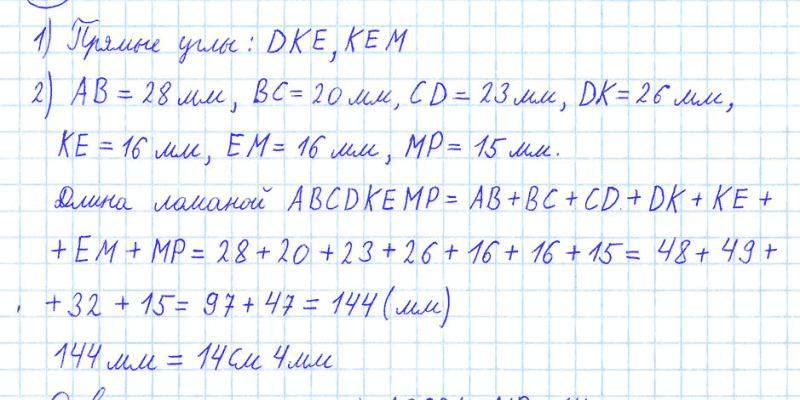 1) Прямые углы: DKE, KEM
2) AB = 28 мм, BC = 20 мм, CD = 23 мм, DK = 26 мм,
KE = 16 мм, EM = 16 мм, MP = 15 мм.
Длина ломаной ABCDKEMP = AB + BC + CD + DK + KE +
+ EM + MP = 28 + 20 + 23 + 26 + 16 + 16 + 15 = 48 + 49 +
+ 32 + 15 = 97 + 47 = 144 (мм)
144 мм = 14 см 4 мм